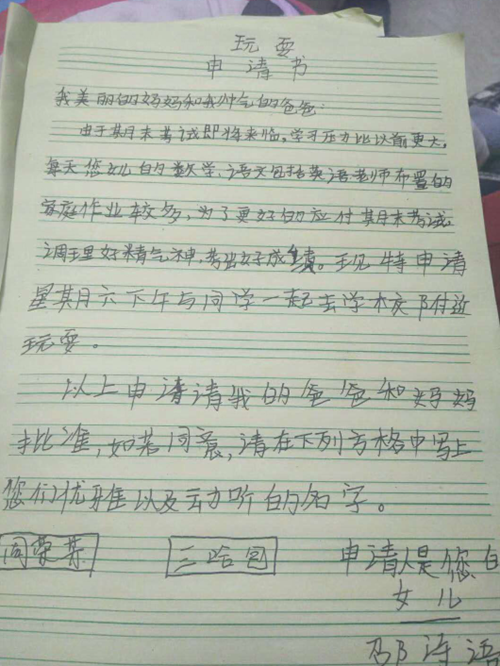 玩耍
申请书
我美丽的妈妈和我帅气的爸爸:
由于期末考试即将来临,学习压力比以前更大,
每天您女儿的数学、语文包括英语老师布置的
家庭作业较多,为了更好的应付期末考试,
调理好精气神,考出好成绩。现特申请
星期六下午与同学一起去学校附近
玩耍。
以上申请请我的爸爸和妈妈
批准,如若同意,请在下列方格中写上
您们优雅以及动听的名字。
三哈包 申请人是您的
女儿
诗语